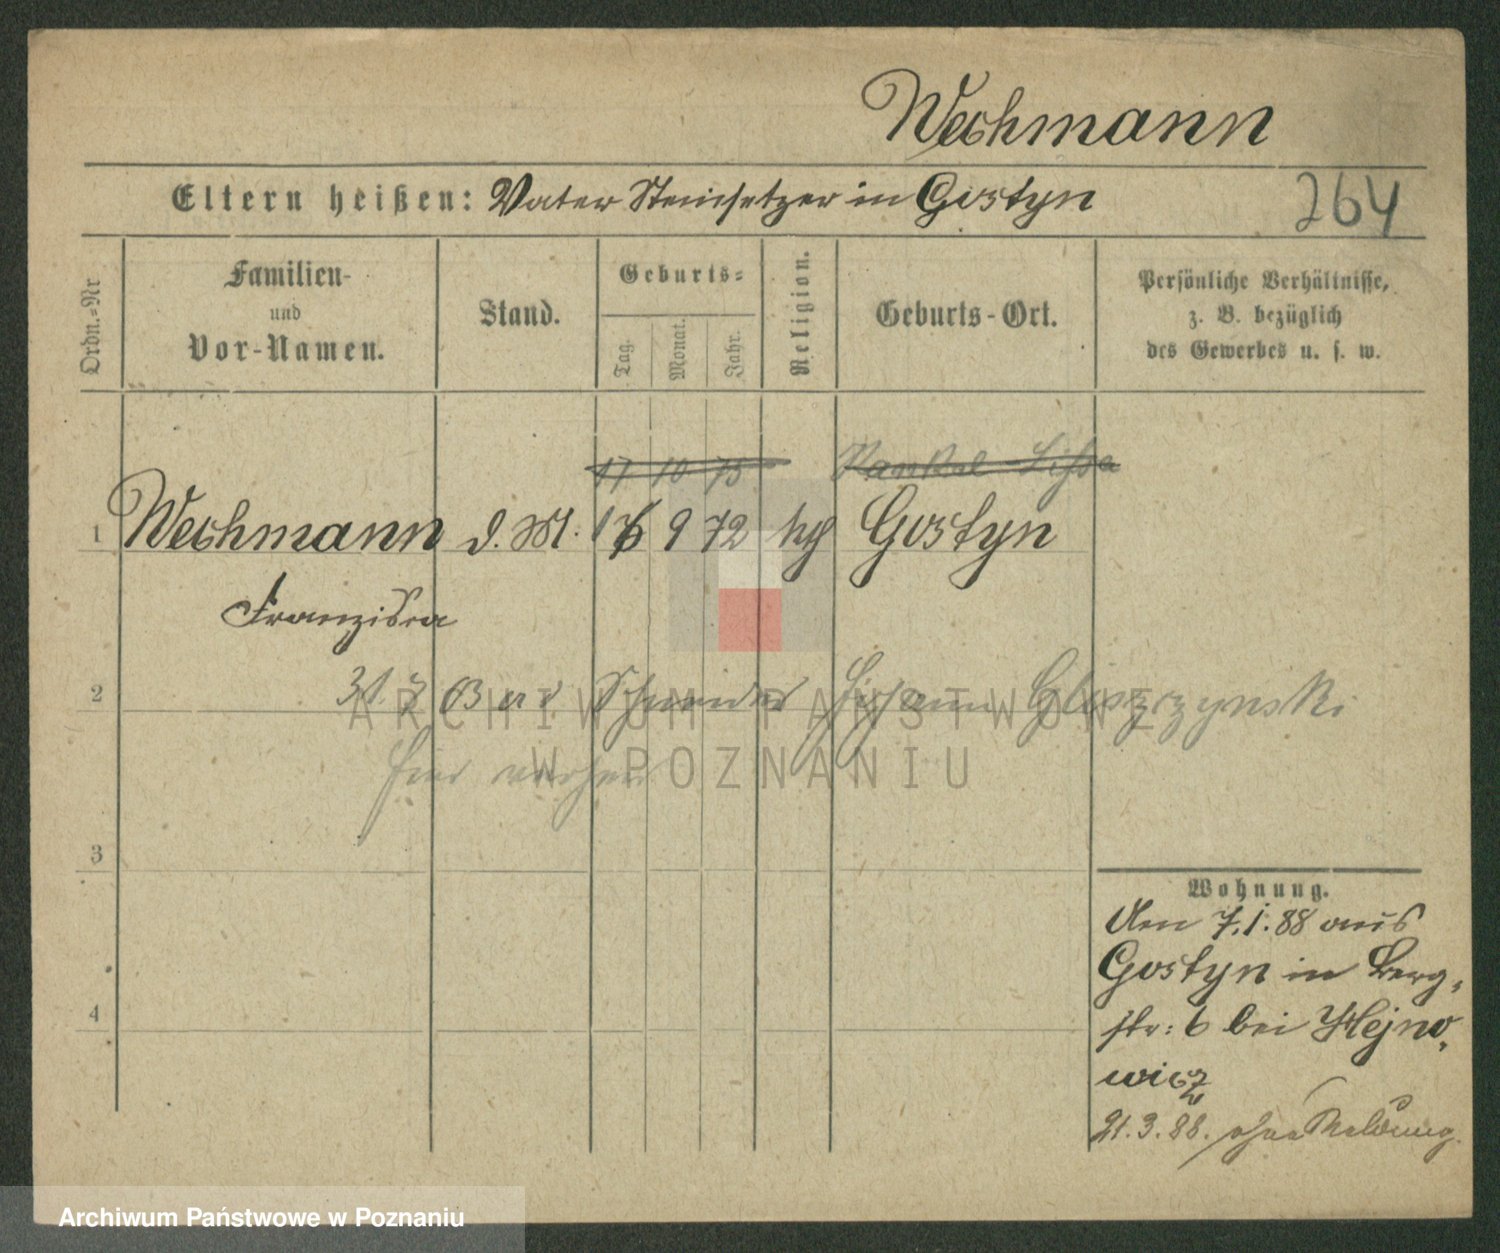 Wechmann
Eltern heißen: Vater Steinsetzer in Gostyn
264
Ordn.-Nr
Familien-
und
Vor-Namen.
Stand.
Geburts-
Tag.
Monat.
Jahr.
Religion.
Geburts-Ort.
Persönliche Verhältnisse,
z. B. bezüglich
des Gewerbes u. s. w.
17 10 75 Lissa
1 Wechmann d. M. 16 9 72 kg Gostyn
Franziska
2
3
4
Wohnung.
Den 7.1.88 aus
Gostyn in Berg-
str: 6 bei Hejno-
wicz
21.3.88. ohne Meldung.
ARCHIWUM PAŃSTWOWE
W POZNANIU
Archiwum Państwowe w Poznaniu